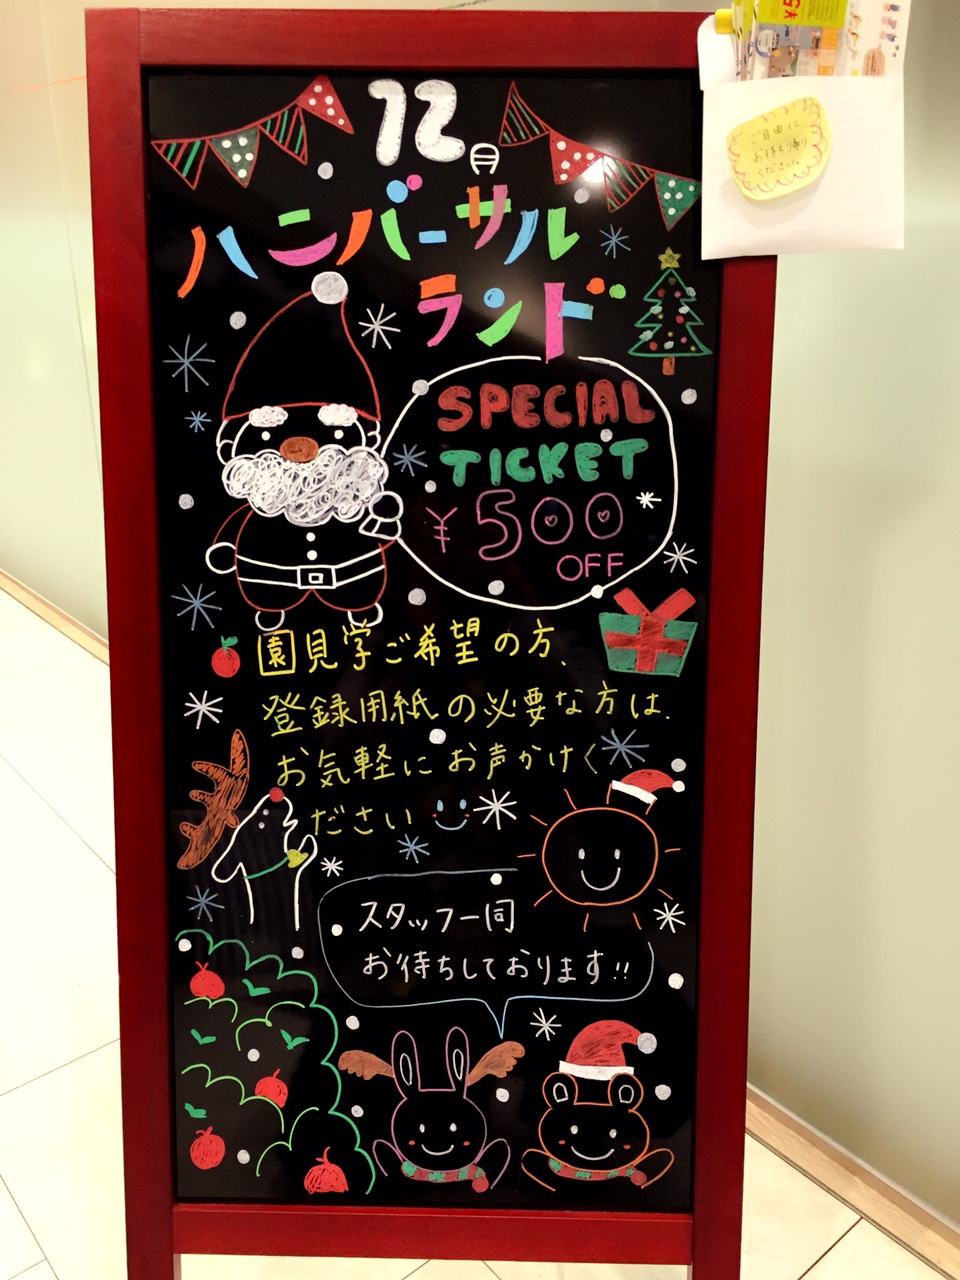 12月
ハンバーサル
ランド
SPECIAL
TICKET
¥500
OFF
園見学ご希望の方、
登録用紙の必要な方は、
お気軽にお声かけく
ださい
スタッフ一同
お待ちしております!!
ご自由に
お持ち帰り
ください。
¥5